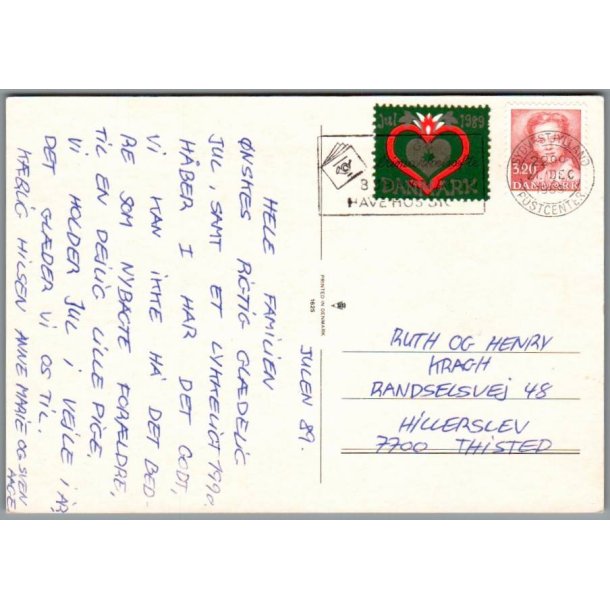 JULEN 89.
HELE FAMILIEN
ØNSKES RIGTIG GLÆDELIG
JUL, SAMT ET LYKKELIGT 1990.
HÅBER I HAR DET GODT,
VI KAN IKKE HÅ DET BED-
RE SOM NYBAGTE FORÆLDRE,
TIL EN DEJLIG LILLE PIGE.
VI HOLDER JUL I VEJLE I ÅR
DET GLÆDER VI OS TIL.
KÆRLIG HILSEN ANNE MARIE OG STEN
AAGE
PRINTED IN DENMARK
1625
Jul 1989
DANMARK
HAVE HOS DIG
3.20
DANMARK
SYDVESTJYLLAND
DEC
POSTCENTER
RUTH OG HENRY
KRAGH
RANDSELSVEJ 48
HILLERSLEV
7700 THISTED